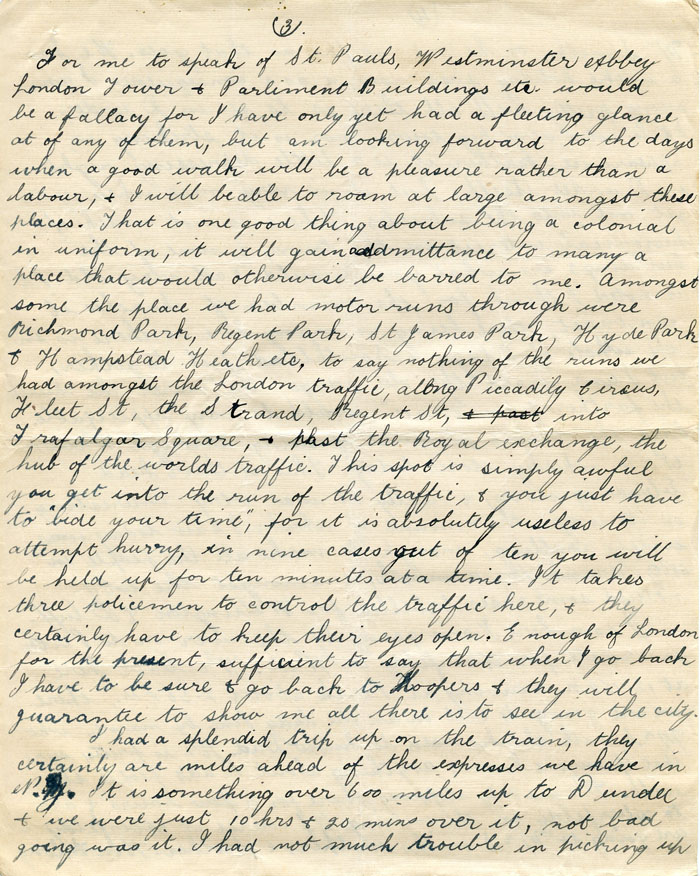 (3).
For me to speak of St. Pauls, Westminster Abbey
London Tower & Parliment Buildings etc. would
be a fallacy for I have only yet had a fleeting glance
at of any of them, but am looking forward to the days
when a good walk will be a pleasure rather than a
labour, & I will beable to roam at large amongst these
places. That is one good thing about being a colonial
in uniform, it will gain addmittance to many a
place that would otherwise be barred to me. Amongst
some the place we had motor runs through were
Richmond Park, Regent Park, St James Park, Hyde Park
& Hampstead Heath etc, to say nothing of the runs we
had amongst the London traffic, along Piccadily Circus,
Fleet St, the Strand, Regent St, & past into
Trafalgar Square, & past the Royal exchange, the
hub of the worlds traffic. This spot is simply awful
you get into the run of the traffic, & you just have
to "bide your time", for it is absolutely useless to
attempt hurry, in nine cases out of ten you will
be held up for ten minutes at a time. It takes
three policemen to control the traffic here, & they
certainly have to keep their eyes open. Enough of London
for the present, sufficient to say that when I go back
I have to be sure & go back to Hoopers & they will
guarantee to show me all there is to see in the city.
I had a splendid trip up on the train, they
certainly are miles ahead of the expresses we have in
N. It is something over 600 miles up to Dundee
& we were just 10 hrs & 20 mins over it, not bad
going was it. I had not much trouble in picking up